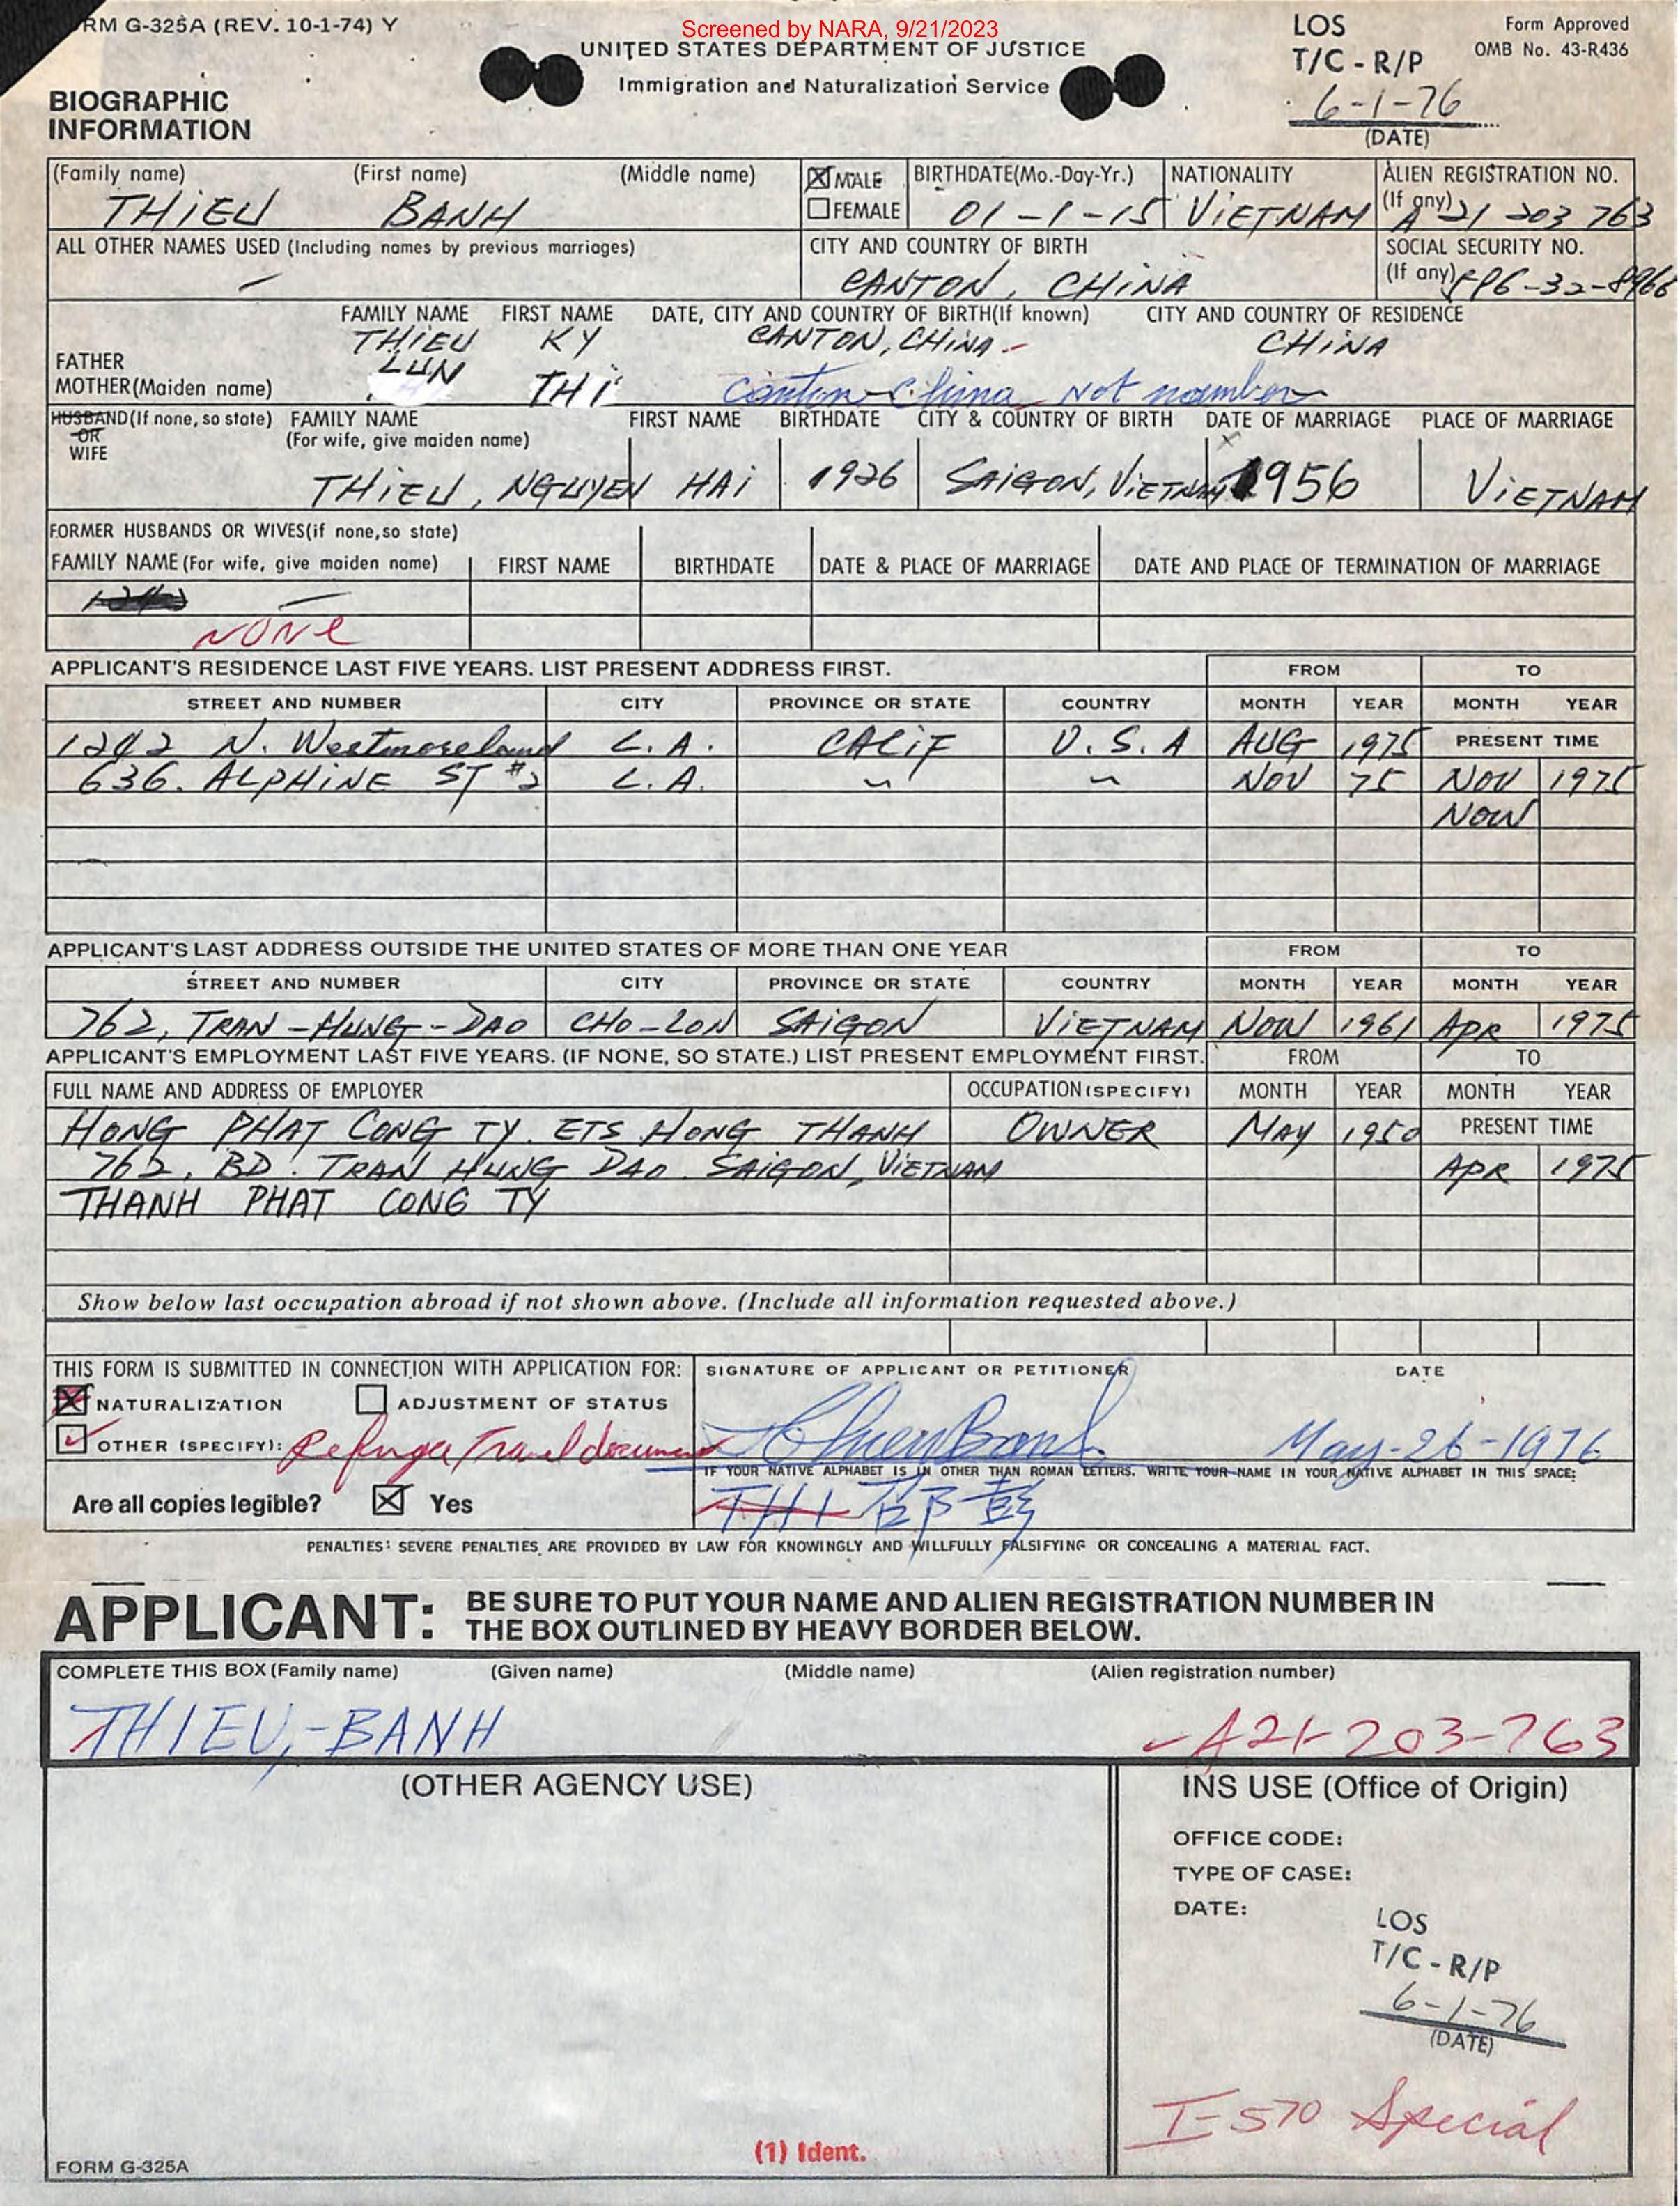 Screened by NARA, 9/21/2023
RM G-325A (REV. 10-1-74) Y
UNITED STATES DEPARTMENT OF JUSTICE
Immigration and Naturalization Service
LOS
T/C - R/P
6-1-76
(DATE)
Form Approved
OMB No. 43-R436
BIOGRAPHIC
INFORMATION
(Family name) (First name) (Middle name) MALE BIRTHDATE(Mo.-Day-Yr.) NATIONALITY ALIEN REGISTRATION NO.
THIEU BANH FEMALE 01-1-15 VIETNAM (If any) A 21 203 763
ALL OTHER NAMES USED (Including names by previous marriages) CITY AND COUNTRY OF BIRTH SOCIAL SECURITY NO.
— CANTON, CHINA (If any)
FAMILY NAME FIRST NAME DATE, CITY AND COUNTRY OF BIRTH(If known) CITY AND COUNTRY OF RESIDENCE
FATHER THIEU KY CANTON, CHINA CHINA
MOTHER(Maiden name) LUN THI Canton China Not
HUSBAND(If none, so state) FAMILY NAME FIRST NAME BIRTHDATE CITY & COUNTRY OF BIRTH DATE OF MARRIAGE PLACE OF MARRIAGE
OR (For wife, give maiden name)
WIFE
THIEU, NGUYEN HAI 1926 SAIGON, VIETNAM 1956 VIETNAM
FORMER HUSBANDS OR WIVES(if none,so state)
FAMILY NAME (For wife, give maiden name) FIRST NAME BIRTHDATE DATE & PLACE OF MARRIAGE DATE AND PLACE OF TERMINATION OF MARRIAGE
—
NONE
APPLICANT'S RESIDENCE LAST FIVE YEARS. LIST PRESENT ADDRESS FIRST. FROM TO
STREET AND NUMBER CITY PROVINCE OR STATE COUNTRY MONTH YEAR MONTH YEAR
1242 N. Westmoreland L.A. CALIF U.S.A AUG 1975 PRESENT TIME
636. ALPHINE ST #2 L.A. " " NOV 75 NOV 1975
NOW
APPLICANT'S LAST ADDRESS OUTSIDE THE UNITED STATES OF MORE THAN ONE YEAR FROM TO
STREET AND NUMBER CITY PROVINCE OR STATE COUNTRY MONTH YEAR MONTH YEAR
762, TRAN-HUNG-DAO CHO-LON SAIGON VIETNAM NOW 1961 APR 1975
APPLICANT'S EMPLOYMENT LAST FIVE YEARS. (IF NONE, SO STATE.) LIST PRESENT EMPLOYMENT FIRST. FROM TO
FULL NAME AND ADDRESS OF EMPLOYER OCCUPATION (SPECIFY) MONTH YEAR MONTH YEAR
HONG PHAT CONG TY. ETS HONG THANH OWNER MAY 1950 PRESENT TIME
762, BD. TRAN HUNG DAO. SAIGON, VIETNAM APR 1975
THANH PHAT CONG TY
Show below last occupation abroad if not shown above. (Include all information requested above.)
THIS FORM IS SUBMITTED IN CONNECTION WITH APPLICATION FOR: SIGNATURE OF APPLICANT OR PETITIONER DATE
NATURALIZATION ADJUSTMENT OF STATUS
OTHER (SPECIFY): Refugee Travel document Thieu Banh May-26-1976
IF YOUR NATIVE ALPHABET IS IN OTHER THAN ROMAN LETTERS. WRITE YOUR NAME IN YOUR NATIVE ALPHABET IN THIS SPACE:
Are all copies legible? Yes THI 邵彭
PENALTIES: SEVERE PENALTIES ARE PROVIDED BY LAW FOR KNOWINGLY AND WILLFULLY FALSIFYING OR CONCEALING A MATERIAL FACT.
APPLICANT: BE SURE TO PUT YOUR NAME AND ALIEN REGISTRATION NUMBER IN
THE BOX OUTLINED BY HEAVY BORDER BELOW.
COMPLETE THIS BOX (Family name) (Given name) (Middle name) (Alien registration number)
THIEU,-BANH A21-203-763
(OTHER AGENCY USE) INS USE (Office of Origin)
OFFICE CODE:
TYPE OF CASE:
DATE:
LOS
T/C - R/P
6-1-76
(DATE)
I-570 Special
(1) Ident.
FORM G-325A